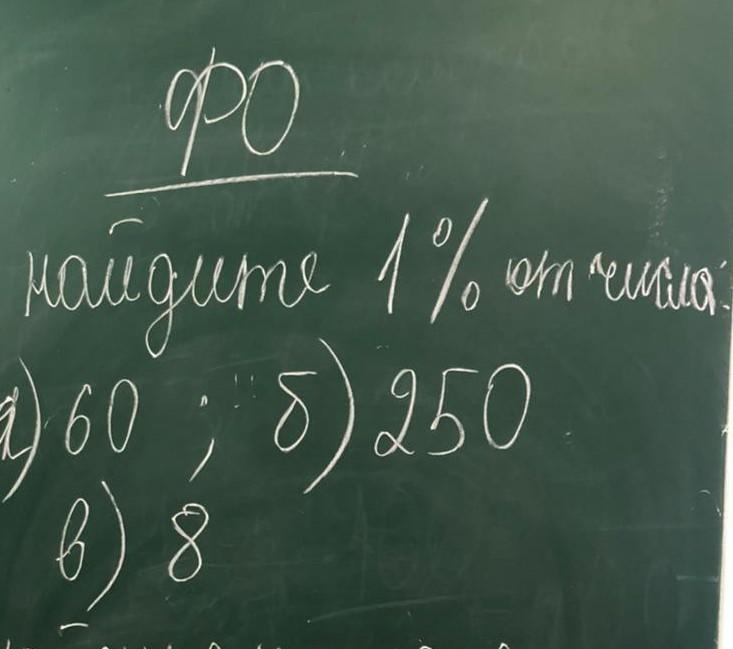 ФО
найдите 1% от числа:
а) 60 ; б) 250
в) 8